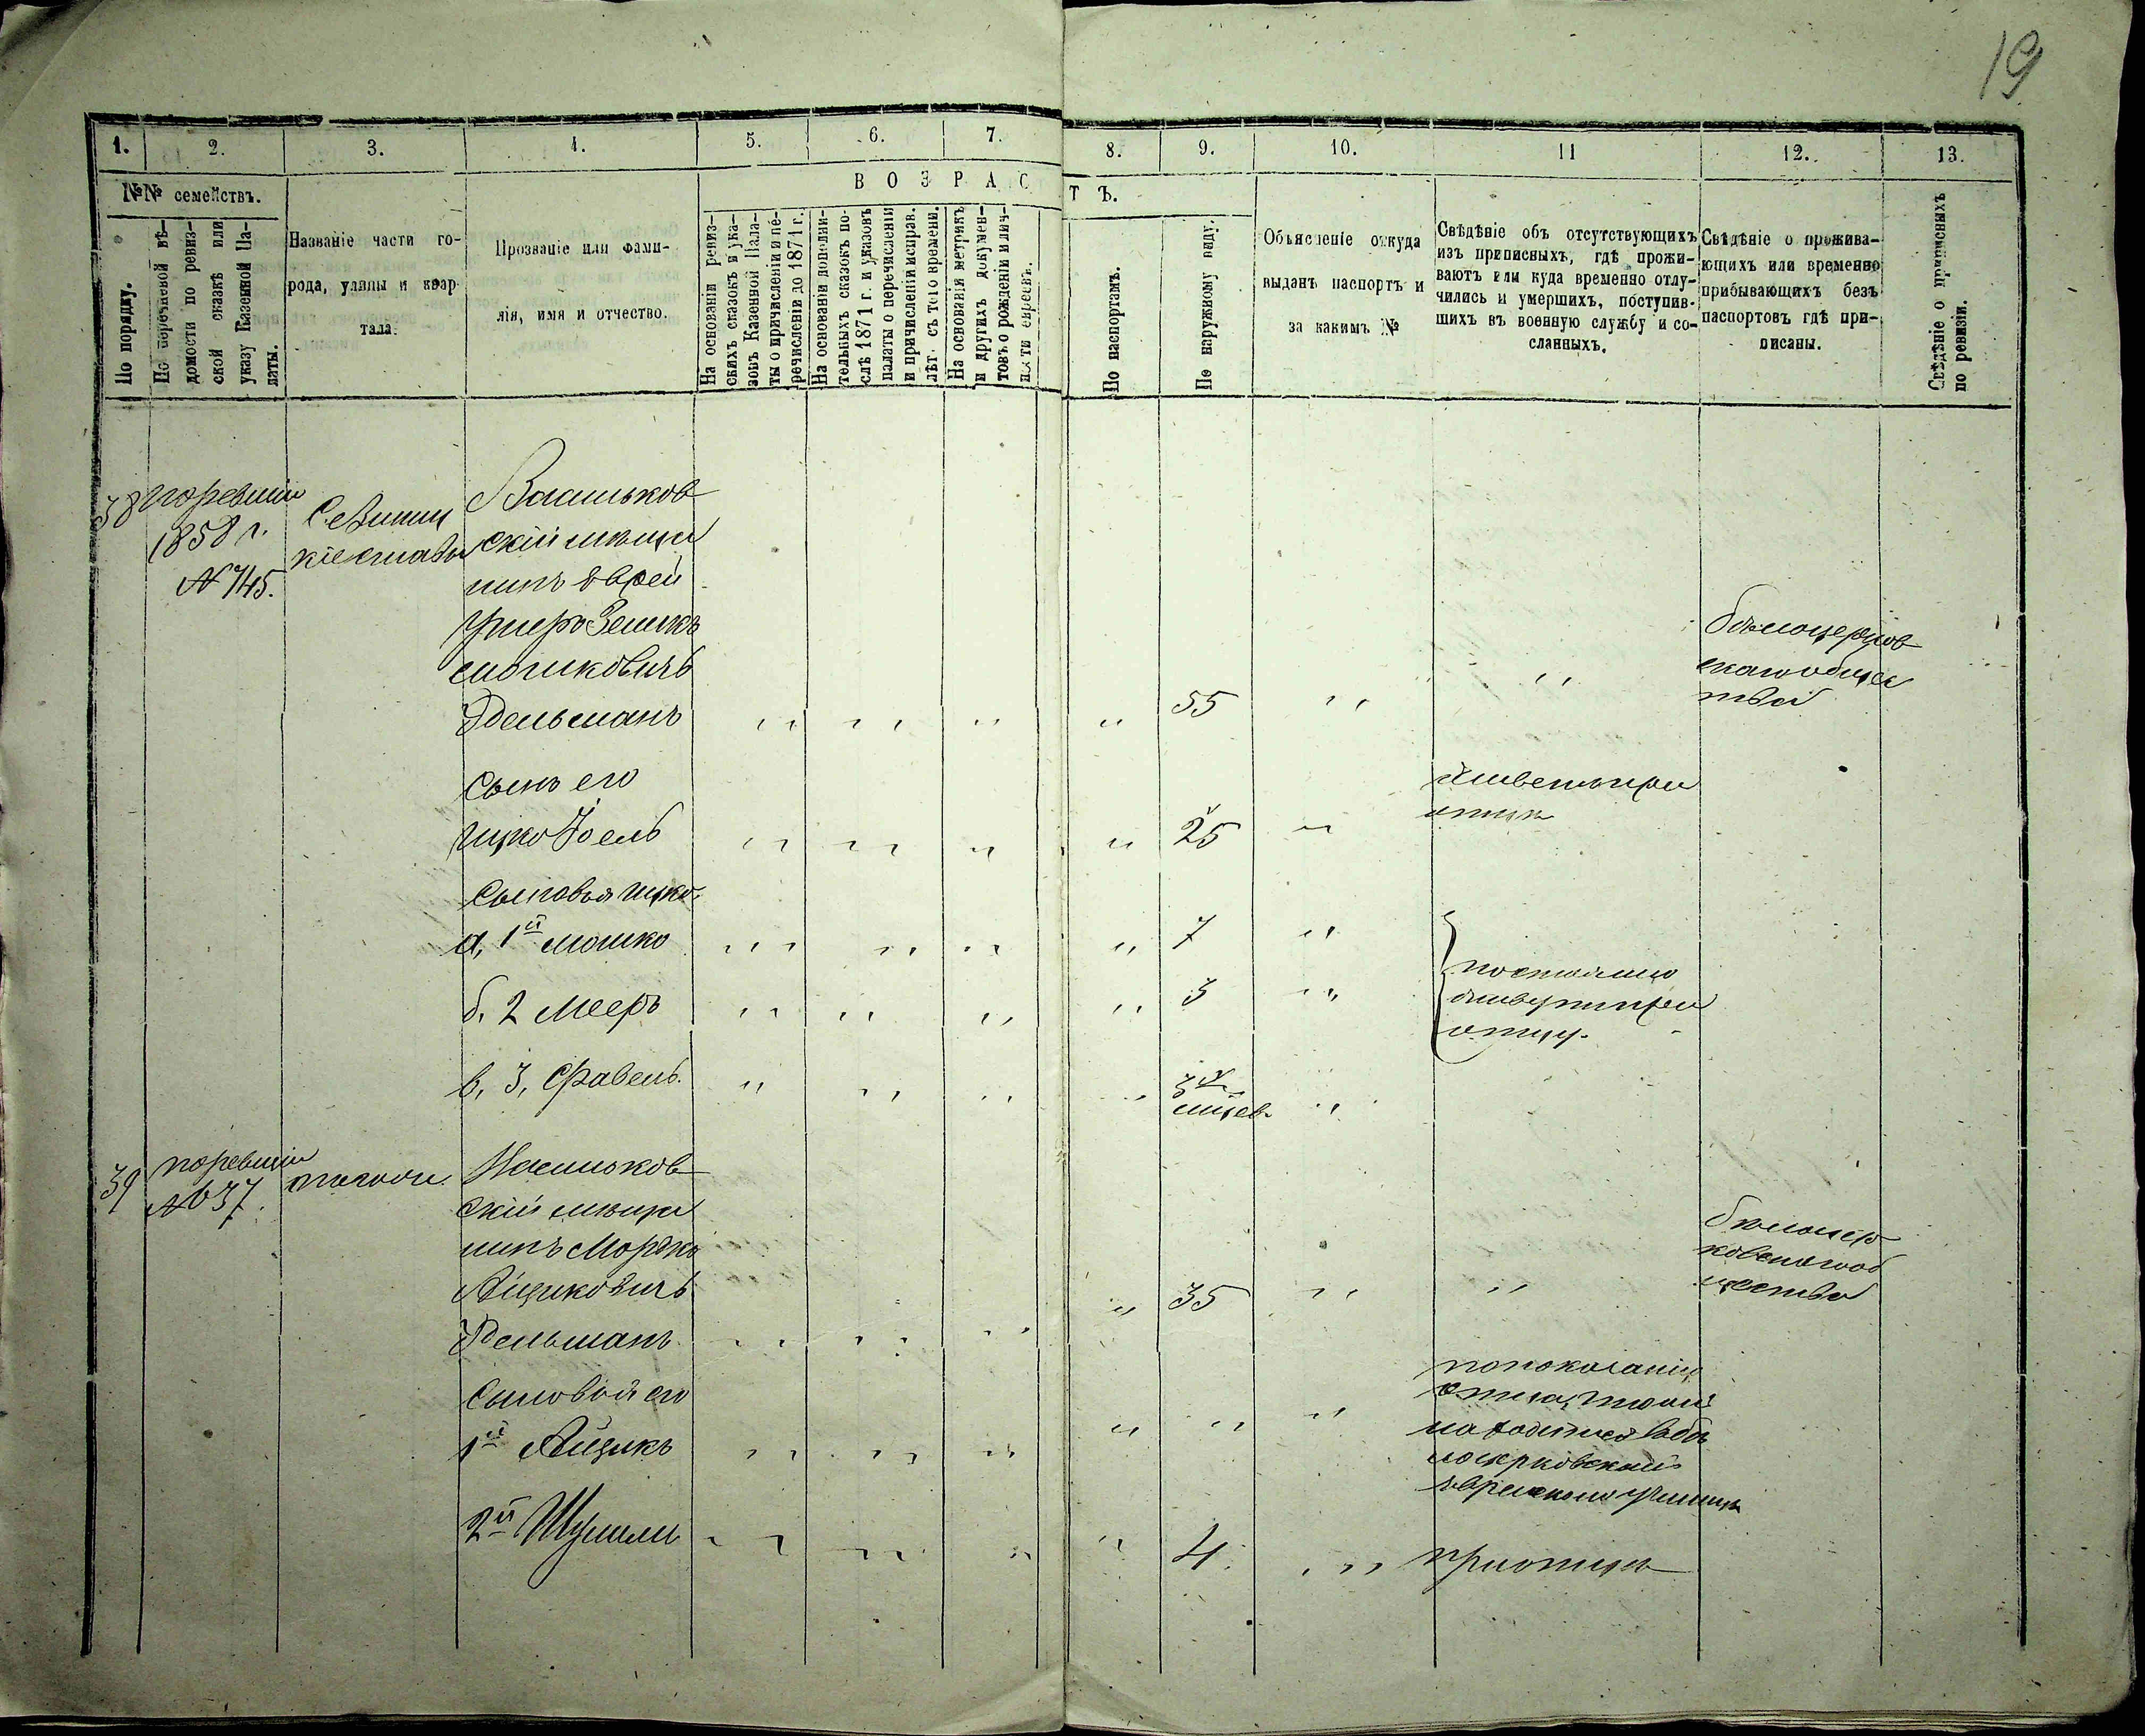 19
1. 2. 3. 4. 5. 6. 7. 8. 9. 10. 11 12. 13.
№№ семействъ.
По порядку.
По перечневой вѣ-
домости по ревиз-
ской сказкѣ или
указу Казенной Па-
латы.
Названіе части го-
рода, улицы и квар-
тала.
Прозваніе или фами-
лія, имя и отчество.
ВОЗРАСТЪ.
На основаніи ревиз-
скихъ сказокъ и ука-
зовъ Казенной Пала-
ты о причисленіи и пе-
речисленіи до 1871 г.
На основаніи дополни-
тельныхъ сказокъ по-
слѣ 1871 г. и указовъ
палаты о перечисленіи
и причисленіи исправ.
лѣт. съ того времени.
На основаніи метрикъ
и другихъ докумен-
товъ о рожденіи и лич-
ности евреевъ.
По паспортамъ.
По наружному виду.
Объясненіе откуда
выданъ паспортъ и
за какимъ №
Свѣдѣніе объ отсутствующихъ
изъ приписныхъ, гдѣ прожи-
ваютъ или куда временно отлу-
чились и умершихъ, поступив-
шихъ въ военную службу и со-
сланныхъ.
Свѣдѣніе о прожива-
ющихъ или временно
прибывающихъ безъ
паспортовъ гдѣ при-
писаны.
Свѣдѣніе о приписныхъ
по ревизіи.
38
поревизіи
1858 г.
№ 745.
Васильков
скій мѣща
нинъ Еврей
Зеликъ
Мошковичъ
Эдельманъ " " " " 55 " "
Бѣлоцерков
скаго общес
тва
Сынъ его
Ицко Іоель " " " " 25 "
живетъ при
отцѣ
Сыновья Ицко
а, 1й Мошко " " " " 7 "
б, 2 Мееръ " " " " 3 "
в, 3, Фавель " " " " "
постоянно
живутъ при
отцу.
39
поревизіи
№ 637.
Васильков
скій мѣща
нинъ Мордко
Айзиковичъ
Эдельманъ " " " " 35 " "
Бѣлоцер
ковскаго об
щества
Сыновья его
1й Айзикъ " " " " " "
по показанію
отца,
находится въ Бѣ
лоцерковскомъ
еврейскомъ училищѣ
2й Шулимъ " " " " 4. " при отцѣ